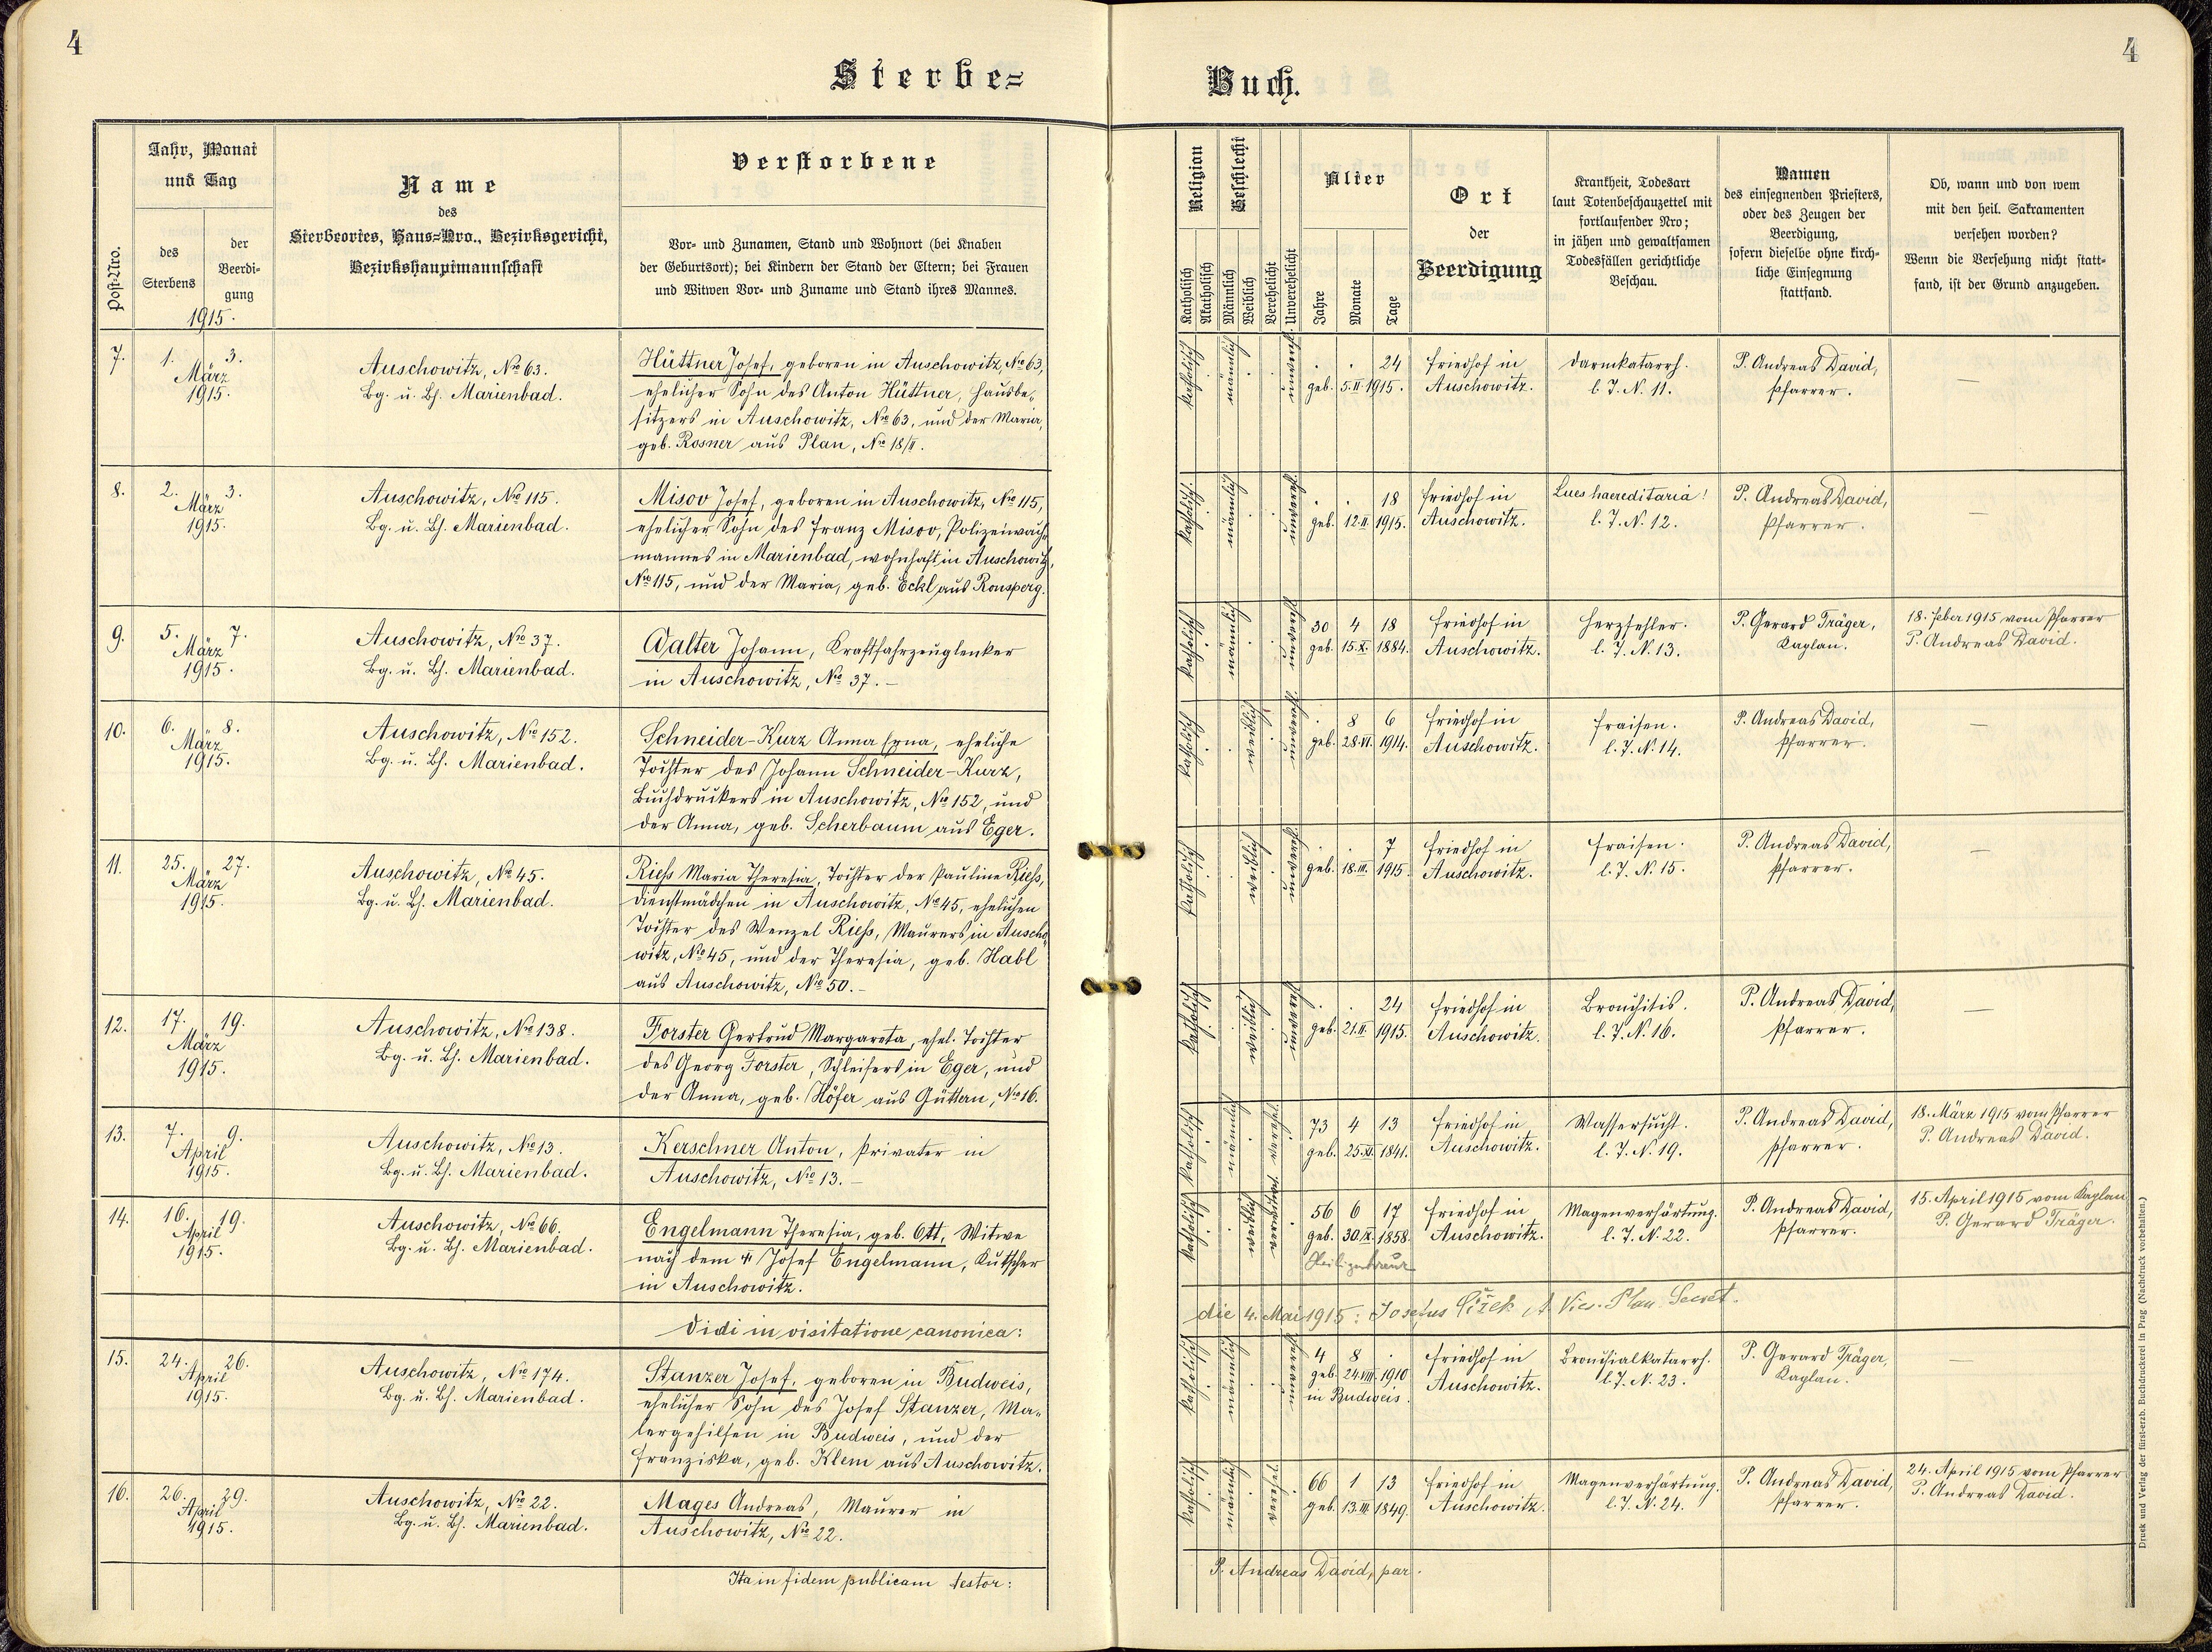 4
Sterbe=
Post-Nro.
Jahr, Monat
und Tag
des
Sterbens
der
Beerdi-
gung
1915.
Name
des
Sterbeortes, Haus=Nro., Bezirksgericht,
Bezirkshauptmannschaft
Verstorbene
Vor- und Zunamen, Stand und Wohnort (bei Knaben
der Geburtsort); bei Kindern der Stand der Eltern; bei Frauen
und Witwen Vor- und Zuname und Stand ihres Mannes.
7.
1. 3.
März
1915.
Auschowitz, Nro 63.
Bg. u. Bh. Marienbad.
Hüttner Josef, geboren in Auschowitz, Nro 63,
ehelicher Sohn des Anton Hüttner, Hausbe-
sitzers in Auschowitz, Nro 63, und der Maria,
geb. Rosner aus Plan, Nro 18/II.
8.
2. 3.
März
1915.
Auschowitz, Nro 115.
Bg. u. Bh. Marienbad.
Misov Josef, geboren in Auschowitz, Nro 115,
ehelicher Sohn des Franz Misov, Polizeiwach-
mannes in Marienbad, wohnhaft in Auschowitz,
Nro 115, und der Maria, geb. Eckl aus Ronsperg.
9.
5. 7.
März
1915.
Auschowitz, Nro 37.
Bg. u. Bh. Marienbad.
Walter Johann, Kraftfahrzeuglenker
in Auschowitz, Nro 37. –
10.
6. 8.
März
1915.
Auschowitz, Nro 152.
Bg. u. Bh. Marienbad.
Schneider-Kurz Anna, eheliche
Tochter des Johann Schneider-Kurz,
Buchdruckers in Auschowitz, Nro 152, und
der Anna, geb. Scherbaum aus Eger.
11.
25. 27.
März
1915.
Auschowitz, Nro 45.
Bg. u. Bh. Marienbad.
Riehs Maria Theresia, Tochter der Pauline Riehs,
Dienstmädchen in Auschowitz, Nro 45, ehelichen
Tochter des Wenzel Riehs, Maurers in Auscho-
witz, Nro 45, und der Theresia, geb. Habl
aus Auschowitz, Nro 50. –
12.
17. 19.
März
1915.
Auschowitz, Nro 138.
Bg. u. Bh. Marienbad.
Forster Gertrud Margareta, ehel. Tochter
des Georg Forster, Schleifers in Eger, und
der Anna, geb. Höfer aus Güttern, Nro 16.
13.
7. 9.
April
1915.
Auschowitz, Nro 13.
Bg. u. Bh. Marienbad.
Kerschner Anton, Privater in
Auschowitz, Nro 13. –
14.
16. 19.
April
1915.
Auschowitz, Nro 66.
Bg. u. Bh. Marienbad.
Engelmann Theresia, geb. Ott, Witwe
nach dem † Josef Engelmann, Kutscher
in Auschowitz.
Vidi in visitatione canonica:
15.
24. 26.
April
1915.
Auschowitz, Nro 174.
Bg. u. Bh. Marienbad.
Stanzer Josef, geboren in Budweis,
ehelicher Sohn des Josef Stanzer, Ma-
lergehilfen in Budweis, und der
Franziska, geb. Klem aus Auschowitz.
16.
26. 29.
April
1915.
Auschowitz, Nro 22.
Bg. u. Bh. Marienbad.
Mages Andreas, Maurer in
Auschowitz, Nro 22.
Ita in fidem publicam testor:
4
Buch.
Religion
Katholisch
Akatholisch
Geschlecht
Männlich
Weiblich
Verehelicht
Unverehelicht
Alter
Jahre
Monate
Tage
Ort
der
Beerdigung
Krankheit, Todesart
laut Totenbeschauzettel mit
fortlaufender Nro;
in jähen und gewaltsamen
Todesfällen gerichtliche
Beschau.
Namen
des einsegnenden Priesters,
oder des Zeugen der
Beerdigung,
sofern dieselbe ohne kirch-
liche Einsegnung
stattfand.
Ob, wann und von wem
mit den heil. Sakramenten
versehen worden?
Wenn die Versehung nicht statt-
fand, ist der Grund anzugeben.
katholisch männlich unvereh.
. . 24
geb. 5. II. 1915.
Friedhof in
Auschowitz.
Darmkatarrh.
l. J. N. 11.
P. Andreas David,
Pfarrer.
—
katholisch männlich unvereh.
. . 18
geb. 12. II. 1915.
Friedhof in
Auschowitz.
Lues haereditaria!
l. J. N. 12.
P. Andreas David,
Pfarrer.
—
katholisch männlich unvereh.
30 4 18
geb. 15. X. 1884.
Friedhof in
Auschowitz.
Herzfehler.
l. J. N. 13.
P. Gerard Träger,
Kaplan.
18. Feber 1915 vom Pfarrer
P. Andreas David.
katholisch weiblich unvereh.
. 8 6
geb. 28. VI. 1914.
Friedhof in
Auschowitz.
Fraisen.
l. J. N. 14.
P. Andreas David,
Pfarrer.
—
katholisch weiblich unvereh.
. . 7
geb. 18. III. 1915.
Friedhof in
Auschowitz.
Fraisen.
l. J. N. 15.
P. Andreas David,
Pfarrer.
—
katholisch weiblich unvereh.
. . 24
geb. 21. II. 1915.
Friedhof in
Auschowitz.
Bronchitis.
l. J. N. 16.
P. Andreas David,
Pfarrer.
—
katholisch männlich verehel.
73 4 13
geb. 25. XI. 1841.
Friedhof in
Auschowitz.
Wassersucht.
l. J. N. 19.
P. Andreas David,
Pfarrer.
18. März 1915 vom Pfarrer
P. Andreas David.
katholisch weiblich verehel.
56 6 17
geb. 30. IX. 1858.
Heiligenkreuz
Friedhof in
Auschowitz.
Magenverhärtung.
l. J. N. 22.
P. Andreas David,
Pfarrer.
15. April 1915 vom Kaplan
P. Gerard Träger.
die 4. Mai 1915: Josefus Čížek, A. Vic. Plan. Secret.
katholisch männlich unvereh.
4 8 .
geb. 24. VIII. 1910
in Budweis.
Friedhof in
Auschowitz.
Bronchialkatarrh.
l. J. N. 23.
P. Gerard Träger,
Kaplan.
—
katholisch männlich verehel.
66 1 13
geb. 13. III. 1849.
Friedhof in
Auschowitz.
Magenverhärtung.
l. J. N. 24.
P. Andreas David,
Pfarrer.
24. April 1915 vom Pfarrer
P. Andreas David.
P. Andreas David, par.
Druck und Verlag der fürst-erzb. Buchdruckerei in Prag. (Nachdruck vorbehalten.)